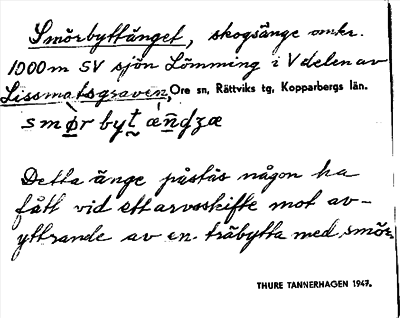 Smörbyttänget, skogsänge omkr.
1000 m SV sjön Lömming i V delen av
Lissmatsgraven, Ore sn, Rättviks tg, Kopparbergs län.
smø̀r byt̰ æ´n̄ʤæ
Detta änge påstås någon ha
fått vid ett arvsskifte mot av-
yttrande av en träbytta med smör.
THURE TANNERHAGEN 1947.